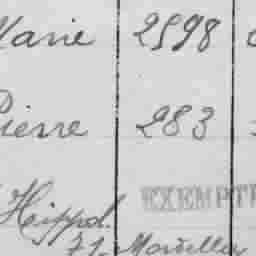 Marie 2598
Pierre 283
Hippol. EXEMPT
71. Marseille